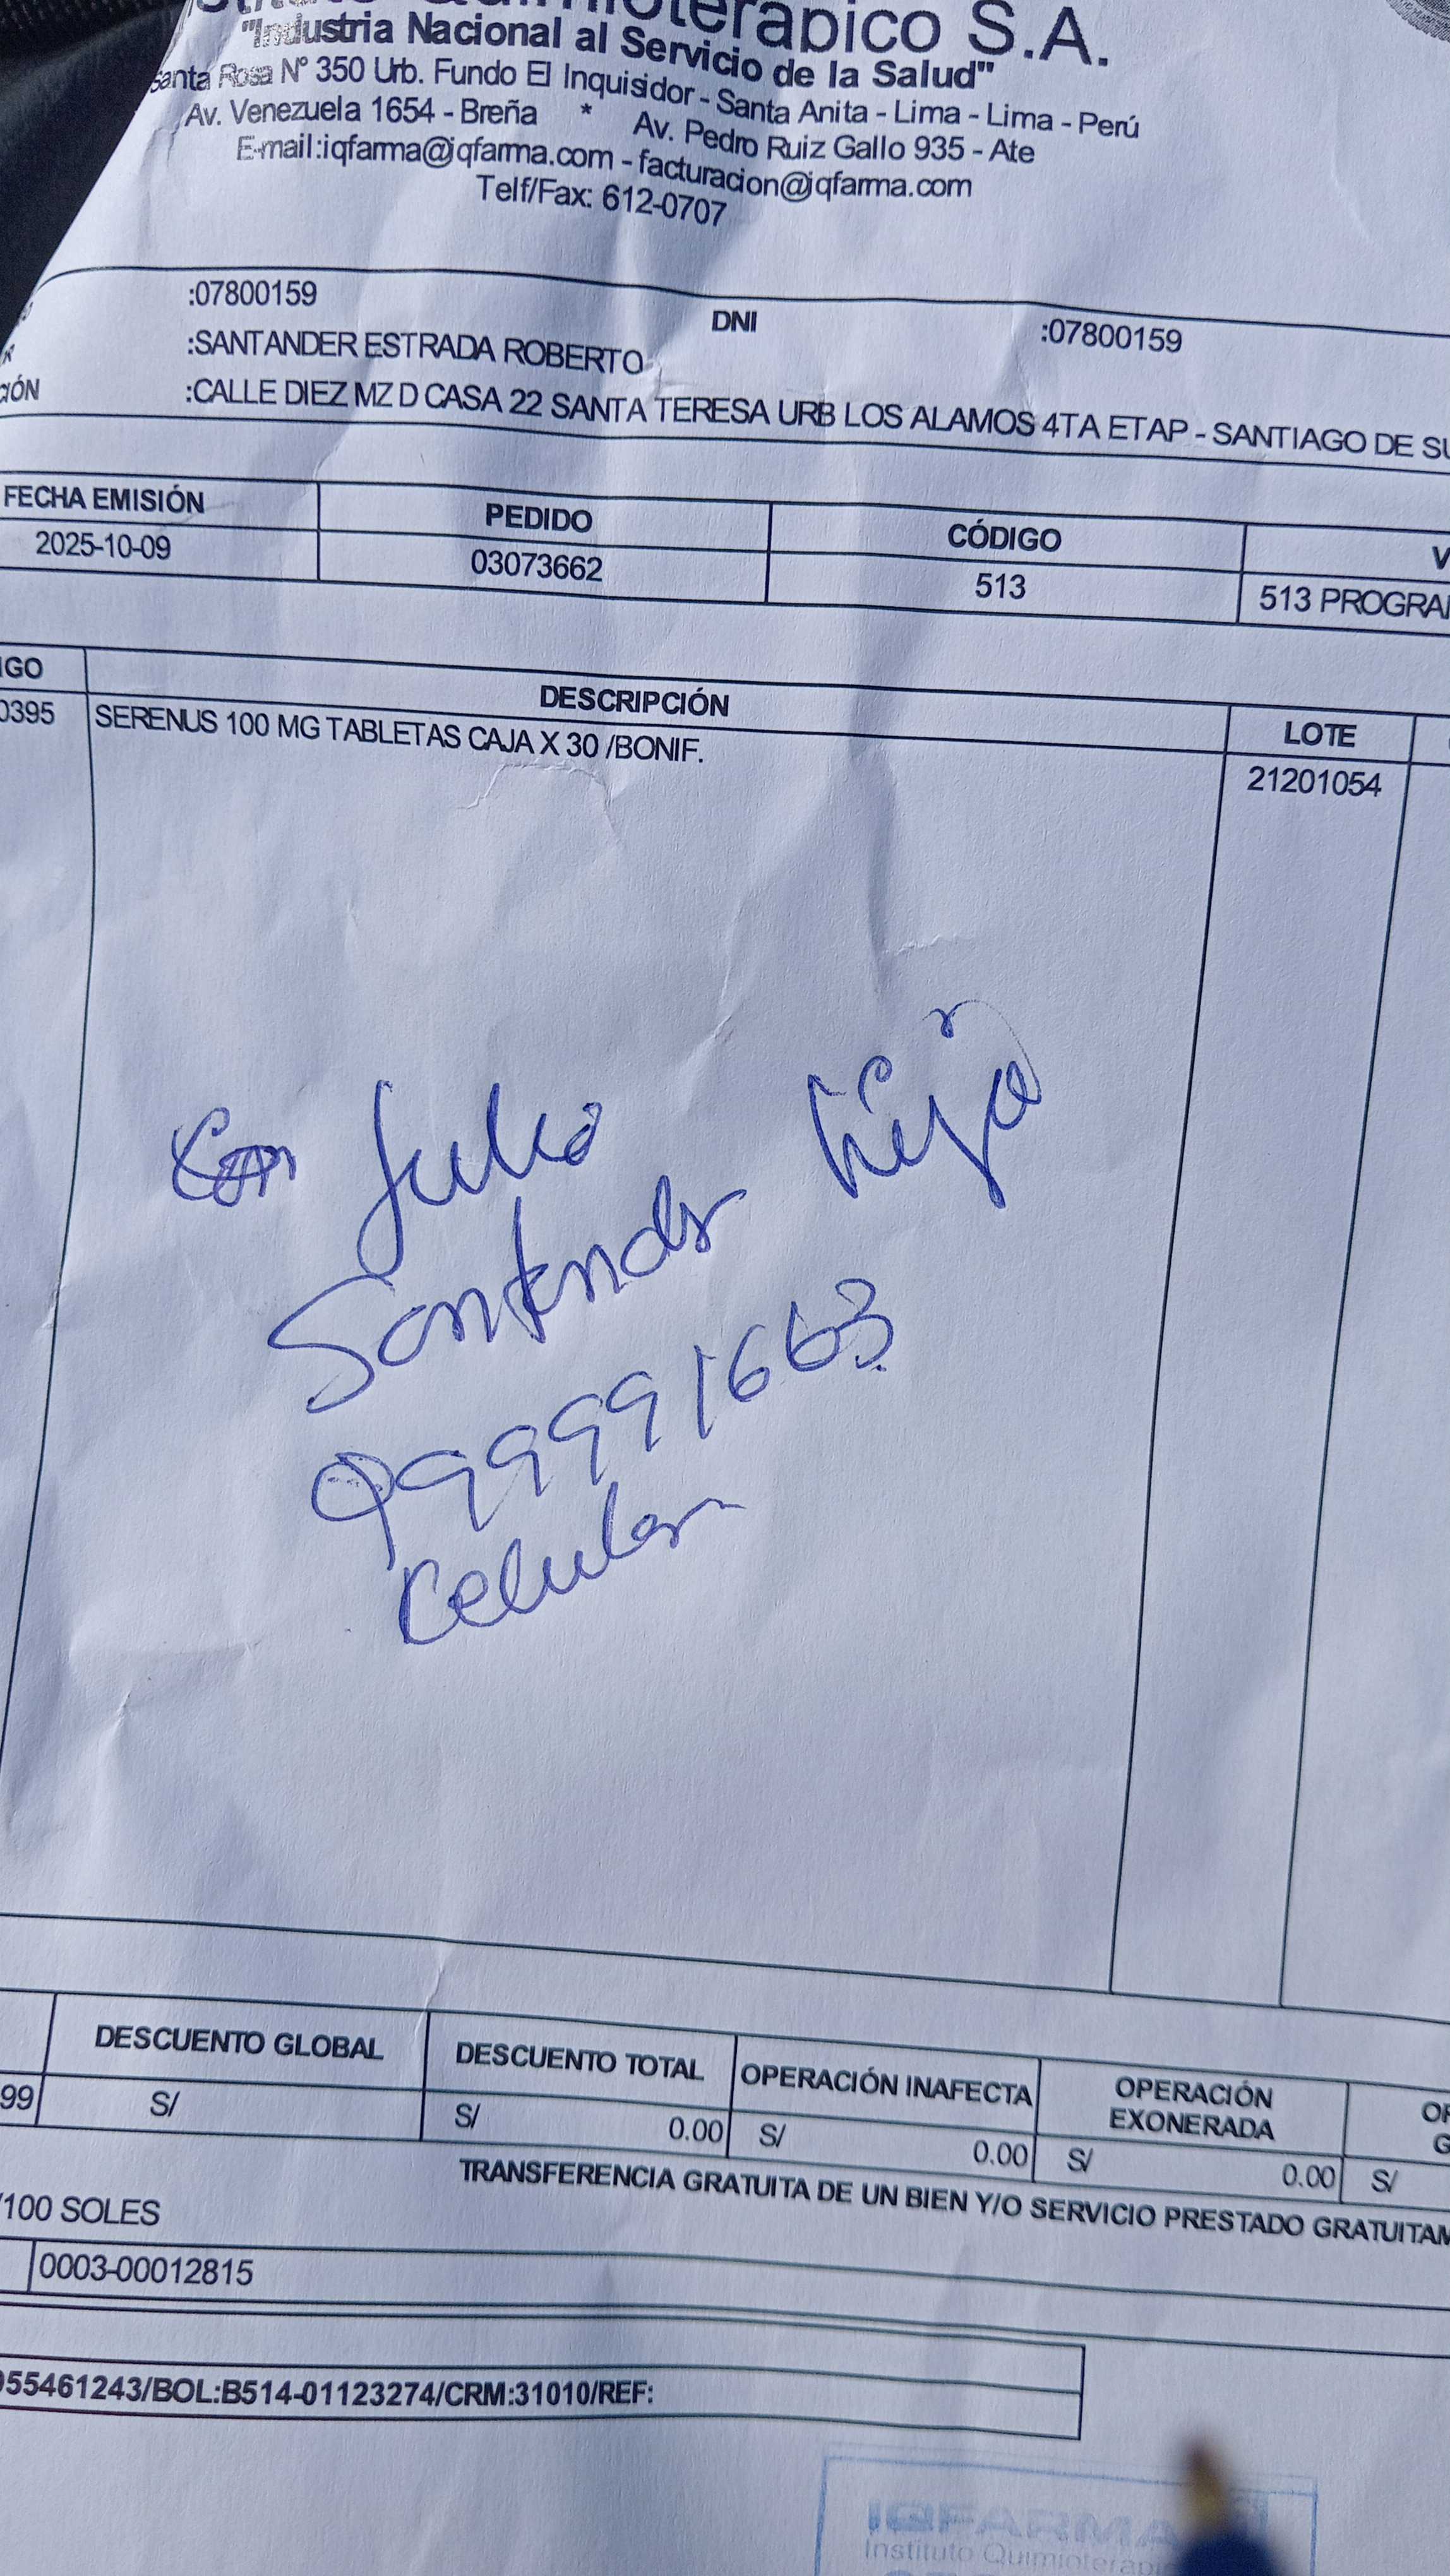 Quimioterapico S.A.
"Industria Nacional al Servicio de la Salud"
Santa Rosa N° 350 Urb. Fundo El Inquisidor - Santa Anita - Lima - Lima - Perú
Av. Venezuela 1654 - Breña * Av. Pedro Ruiz Gallo 935 - Ate
E-mail:iqfarma@iqfarma.com - facturacion@iqfarma.com
Telf/Fax: 612-0707
:07800159 DNI :07800159
:SANTANDER ESTRADA ROBERTO
IÓN :CALLE DIEZ MZ D CASA 22 SANTA TERESA URB LOS ALAMOS 4TA ETAP - SANTIAGO DE SU
FECHA EMISIÓN PEDIDO CÓDIGO V
2025-10-09 03073662 513 513 PROGRA
IGO DESCRIPCIÓN LOTE
0395 SERENUS 100 MG TABLETAS CAJA X 30 /BONIF. 21201054
Con Julio
Santander
999991663
Celular
DESCUENTO GLOBAL DESCUENTO TOTAL OPERACIÓN INAFECTA OPERACIÓN EXONERADA OP G
99 S/ S/ 0.00 S/ 0.00 S/ 0.00 S/
TRANSFERENCIA GRATUITA DE UN BIEN Y/O SERVICIO PRESTADO GRATUITAM
/100 SOLES
0003-00012815
955461243/BOL:B514-01123274/CRM:31010/REF:
IQFARMA
Instituto Quimioterapi